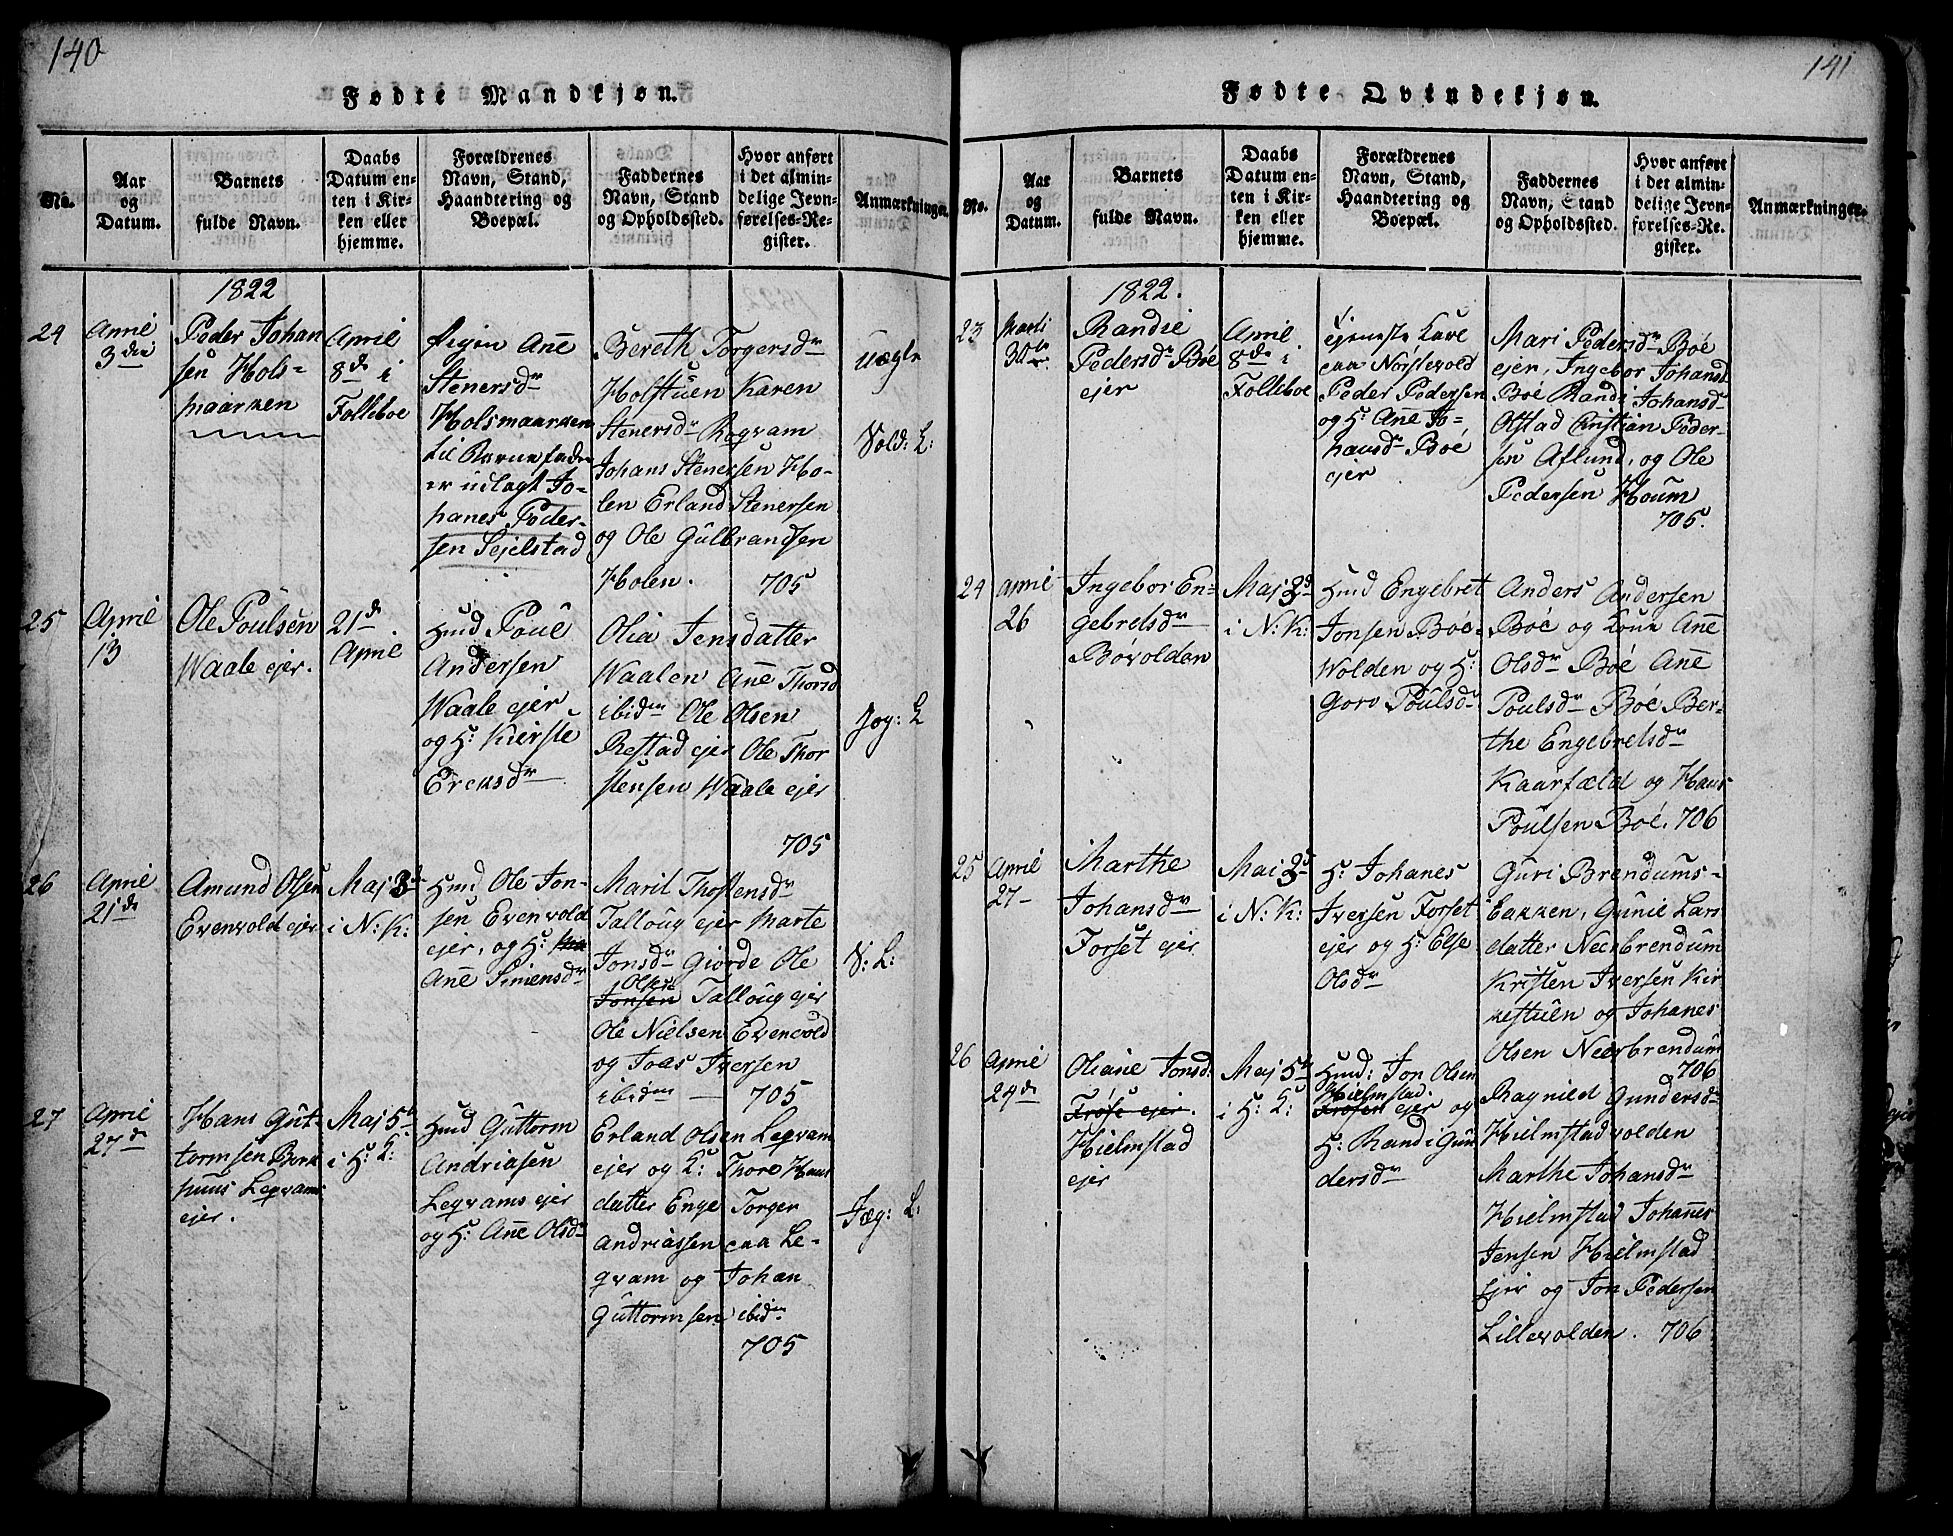 140
Fødte Mandkjøn.
No.
Aar
og
Datum.
Barnets
fulde Navn.
Daabs
Datum en-
ten i Kir-
ken eller
hjemme.
Forældrenes
Navn, Stand,
Haandtering og
Boepæl.
Faddernes
Navn, Stand
og Opholdssted.
Hvor anført
i det almin-
delige Jevn-
førelses-Re-
gister.
Anmærkninger.
1822
24
April
3die
Peder Johan
sen Hols-
maarken
April
8de i
Folleboe
Pigen Ane
Stenersdr
Holsmaarken
til Barnefader
er udlagt Jo-
hanes Peder-
sen Sejelstad
Bereth Torgersdr
Holstuen Karen
Stenersdr Rogvam
Johans Stenersen Ho-
len Erland Stenersen
og Ole Gulbrandsen
Holen. 705
uægte
Vold: L:
25
April
13
Ole Poulsen
Waale ejer.
21de
April
Hmd Poul
Andersen
Waale ejer,
og H: Kierste
Ericksdr
Olia Jensdatter
Waalen Ane Thorsd
ibidm Ole Olsen
Restad ejer Ole Thor
stensen Waale ejer
705
Jog: L
26
April
21de
Amund Olsen
Evenvold ejer
Maj 3de
i N: K:
Hmd Ole Jon-
sen Evenvold
ejer, og H:
Ane Simensdr
Marit Thostensdr
Talloug ejer Marte
Jonsdr Giørde Ole
Olsen
Jonsen Talloug ejer
Ole Nielsen Evenvold
og Joas Iversen
ibidm — 705
V: L:
27
April
27de
Hans Gut-
tormsen Bæk
huus Leqvams
ejer.
Maj 5te
i H: L:
Hmd Guttorm
Andriasen
Leqvams ejer
og H: Ane Olsdr
Erland Olsen Leqvam
ejer og L: Thore Hans
datter Enge Torger
Andriassen paa Le-
qvam og Johan
Guttormsen ibidm
705
Jæg: L:
141
Fødte Qvindekjøn.
No.
Aar
og
Datum.
Barnets
fulde Navn.
Daabs
Datum en-
ten i Kir-
ken eller
hjemme.
Forældrenes
Navn, Stand,
Haandtering og
Boepæl.
Faddernes
Navn, Stand
og Opholdssted.
Hvor anført
i det almin-
delige Jevn-
førelses-Re-
gister.
Anmærkninger.
1822.
23
Marti
30te
Randie
Pedersdr Boe
ejer
April
8de i
Folleboe
tjeneste Karl
paa Norstevold
Peder Pedersen
og H: Ane Jo-
hansdr Boe
ejer
Mari Pedersdr Boe
ejer, Ingebor Johansd
Boe Randi Johansdr
Olstad Christian Peder-
sen Aflund, og Ole
Pedersen Houm
705.
24
April
26
Ingebor En-
gebretsdr
Bovolden
Maj 3de
i N: K:
Hmd Engebret
Jonsen Boe-
Wolden og H:
Goro Poulsdr
Anders Andersen
Boe og Kone Ane
Olsdr Boe Ane
Poulsdr Boe Ber-
the Engebretsdr
Kaarfæld og Hans
Poulsen Boe. 706
25
April
27
Marthe
Johansdr
Forset ejer
Mai 3de
i N: K:
H: Johanes
Iversen Forset
ejer og H: Else
Olsdr
Guri Brendums-
Bakken, Gunil Lars
datter Neerbrendum
Kristen Iversen Kir
kestuen og Johanes
Olsen Neerbrendum
706
26
April
24de
Oliane Jonsd:
Frøse ejer.
Hielmstad
ejer
Maj 5te
i H: L:
Hmd: Jon Olsen
Hielmstad.
Frøsen ejer og
H: Randi Gun
dersdr
Ragnild Gundersdr
Hielmstadvolden
Marthe Johansdr
Hielmstad Johannes
Jensen Hielmstad
Ejer og Jon Pedersen
Lillevolden. 706